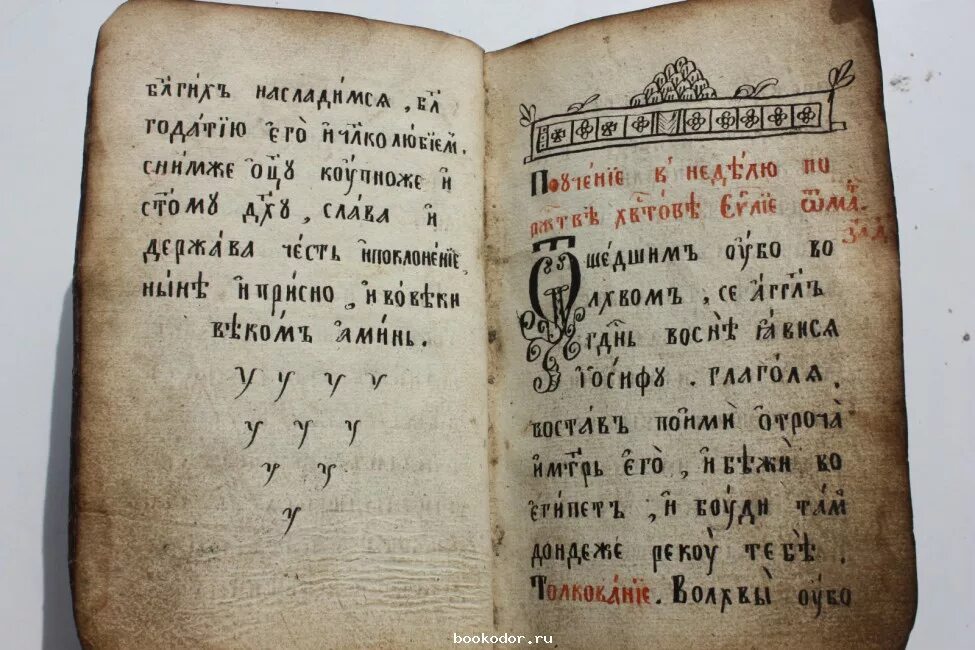 бл҃ги́хъ наслади́мся, бл҃
года́тїю є҆го̀ и҆ чл҃колю́бїем.
сни́мже ѻ҆ц҃у̀ коу́пноже и҆
ст҃о́му дх҃у, сла́ва и҆
держа́ва че́сть и҆поклоне́нїе,
ны́нѣ и҆при́сно, и҆во́вѣки
вѣко́мъ а҆ми́нь.
Поуче́нїе к недѣ́лю по
рж҃твѣ хв҃то́вѣ Єѵ҃лїе ѿма.
за д҃
Ѿше́дшимъ оу҆́бо во
лхво́мъ, се а҆́гг҃лъ
гд҃нь воснѣ̀ ꙗ҆ви́ся
і҆о́сифу. глаго́ля.
воста́въ пои҆мѝ ѻ҆троча̀
и҆мт҃рь є҆го̀, и҆ бѣжѝ во
єги́петъ, и҆ бо́уди та́м
до́ндеже рекоу̀ тебѣ̀.
Толкова́нїе. Волхвы̀ оу҆́бо
bookodor.ru